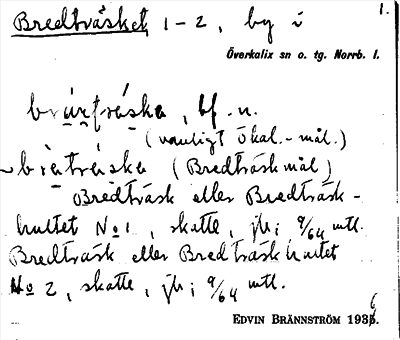 1.
Bredträsket 1-2, by i
Överkalix sn o. tg. Norrb. l.
bf. n.
(vanligt ökal.-mål.)
(Bredträskmål)
Bredträsk eller Bredträsk-
hultet No 1, skatte, jb; 9/64 mtl.
Bredträsk eller Bredträskhultet
No 2, skatte, jb; 9/64 mtl.
EDVIN BRÄNNSTRÖM 1936.